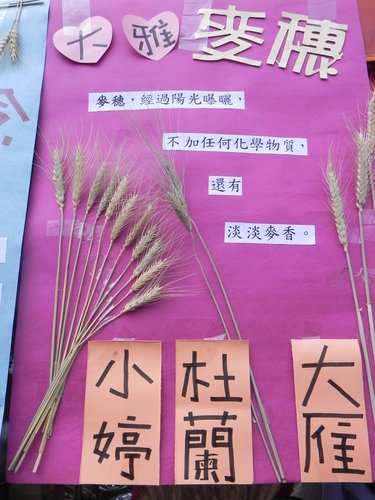 大雅 麥穗
麥穗，經過陽光曝曬，
不加任何化學物質，
還有
淡淡麥香。
小婷
杜蘭
大雁